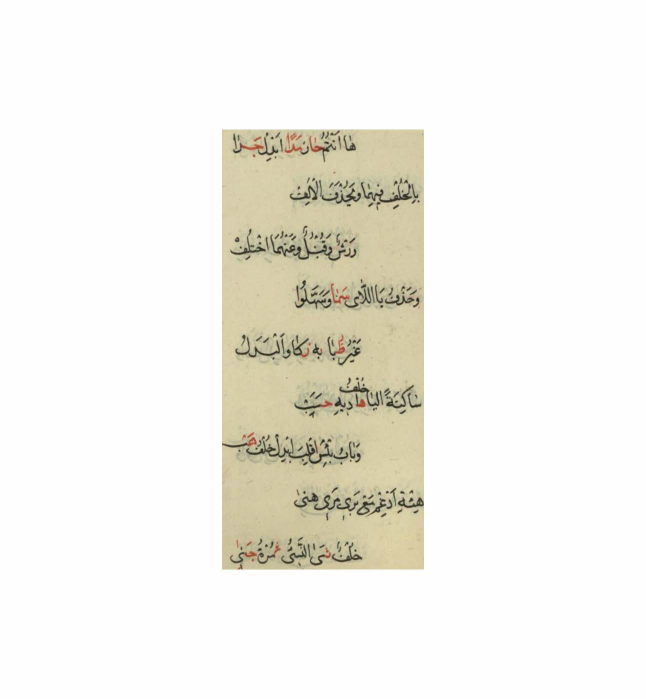 هَا أَنْتُمُ حَازَ مَدًا أَبْدِلْ جَدَا
بِالْخُلْفِ فِيهِمَا وَيَحْذِفُ الْأَلِفْ
وَرْشٌ وَقُنْبُلٌ وَعَنْهُمَا اخْتُلِفْ
وَحَذْفُ يَا اللَّائِى سَمَا وَسَهَّلُوا
غَيْرُ ظُبًا بِهِ زَكَا وَالْبَدَلُ
سَاكِنَةً الْيَا خُلْفُ هَادِيهِ حَسَبْ
وَبَابُ يَيْئَسِ اقْلِبْ أَبْدِلْ خُلْفُ هَبْ
هَيْئَةَ أَدْغِمْ مَعْ بَرِى مَرِى هَنِى
خُلْفٌ ثَنَا النَّسِيُّ ثَمْرُهُ جَنِى